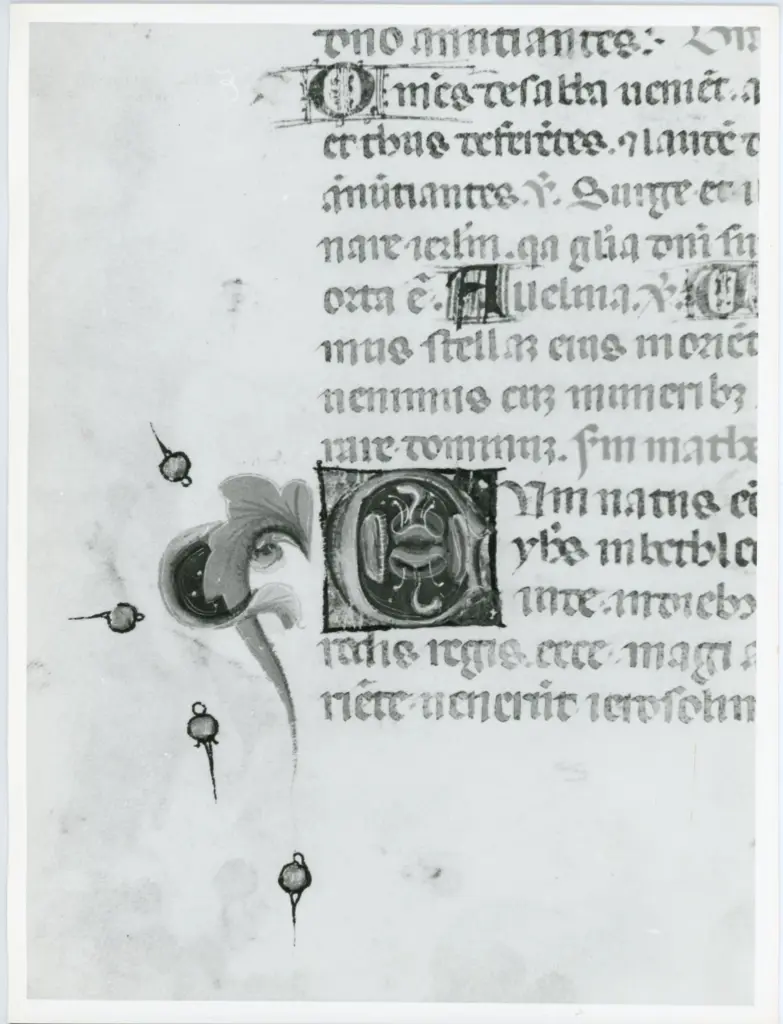 dno ãnũtiantes:·
Om̃es de saba ueniẽt. a
et thus deferẽtes. ⁊ laudẽ d
ãnũtiantes. V̇. Surge et i
nare ierl̃m. qa gl̃ia dñi su
orta ẽ. Alleluia. V̇.
mus stellaꝫ eius in oriẽt
uenimus cuꝫ muneribꝫ
rare dominuꝫ. Sm̃ math
Cum natus eẽ
yħs in bethle
iude. in diebꝫ
rodis regis. ecce magi
riẽte uenerũt ierosolim